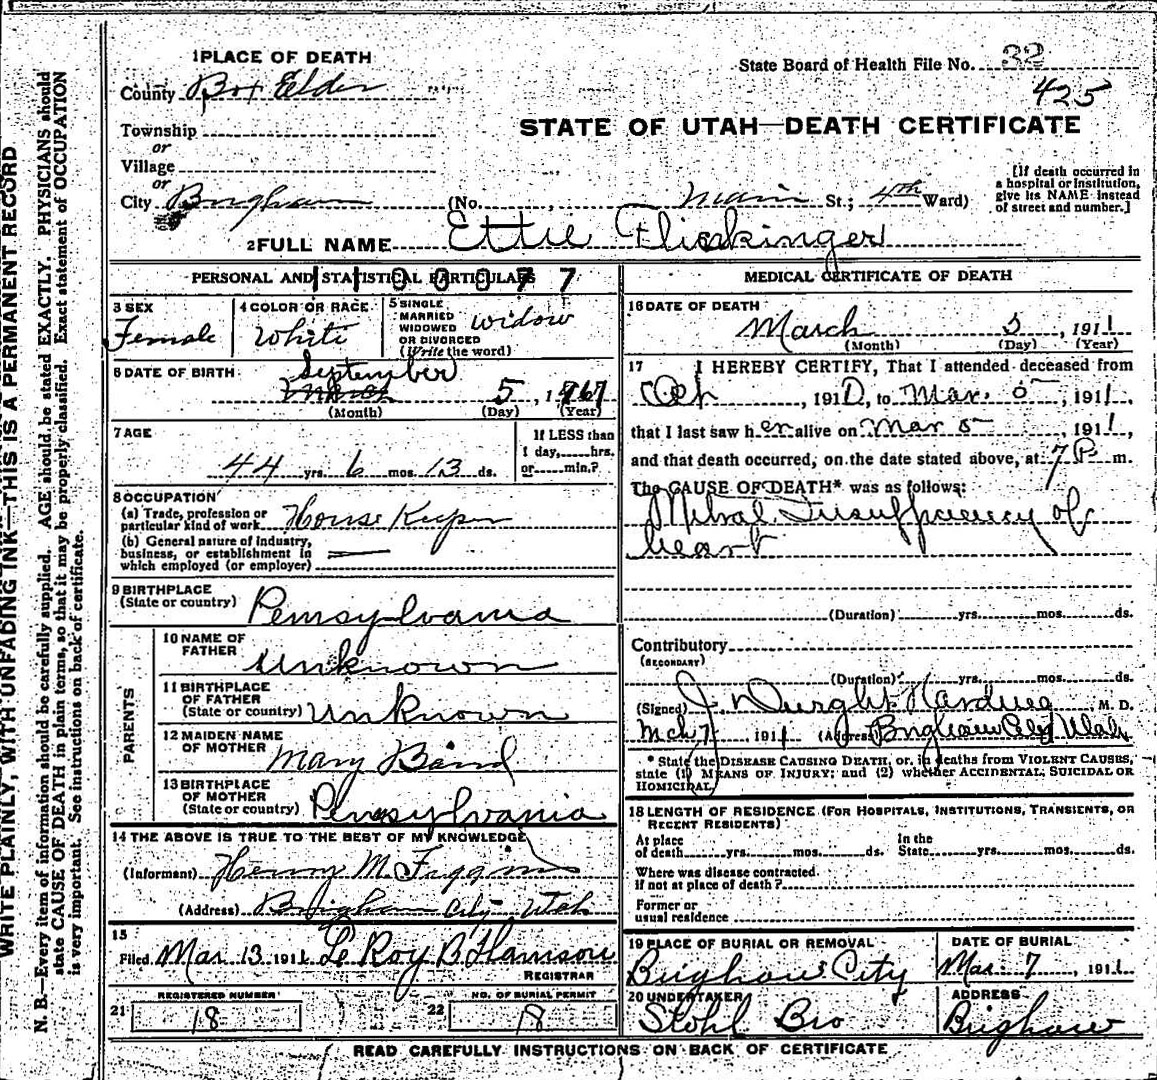 WRITE PLAINLY, WITH UNFADING INK—THIS IS A PERMANENT RECORD
N. B.—Every item of information should be carefully supplied. AGE should be stated EXACTLY. PHYSICIANS should
state CAUSE OF DEATH in plain terms, so that it may be properly classified. Exact statement of OCCUPATION
is very important. See instructions on back of certificate.
1 PLACE OF DEATH
County Box Elder
Township
or
Village
or
City Brigham
State Board of Health File No. 32
425
STATE OF UTAH—DEATH CERTIFICATE
(No. , Main St.; 4th Ward)
[If death occurred in
a hospital or institution,
give its NAME instead
of street and number.]
2 FULL NAME Ettie Flickinger
PERSONAL AND STATISTICAL PARTICULARS
3 SEX
Female
4 COLOR OR RACE
White
5 SINGLE
MARRIED
WIDOWED
OR DIVORCED
(Write the word)
widow
6 DATE OF BIRTH
September
5
(Month) (Day) (Year)
7 AGE
44 yrs. 6 mos. 13 ds.
If LESS than
1 day, hrs.
or min.?
8 OCCUPATION
(a) Trade, profession or
particular kind of work House Keeper
(b) General nature of industry,
business, or establishment in
which employed (or employer)
9 BIRTHPLACE
(State or country) Pennsylvania
PARENTS
10 NAME OF
FATHER Unknown
11 BIRTHPLACE
OF FATHER
(State or country) Unknown
12 MAIDEN NAME
OF MOTHER Mary Baird
13 BIRTHPLACE
OF MOTHER
(State or country) Pennsylvania
14 THE ABOVE IS TRUE TO THE BEST OF MY KNOWLEDGE
(Informant) Henry M.
(Address) Brigham City Utah
15
Filed Mar 13 1911 Le Roy B Harrison
REGISTRAR
REGISTERED NUMBER
21 18
NO. OF BURIAL PERMIT
22 18
MEDICAL CERTIFICATE OF DEATH
16 DATE OF DEATH
March 5, 1911
(Month) (Day) (Year)
17 I HEREBY CERTIFY, That I attended deceased from
, 1910, to Mar. 5, 1911,
that I last saw her alive on Mar 5, 1911,
and that death occurred, on the date stated above, at 7 P m.
The CAUSE OF DEATH* was as follows:
Mitral Insufficiency of
heart
(Duration) yrs. mos. ds.
Contributory
(SECONDARY)
(Duration) yrs. mos. ds.
(Signed) J. Dwight Harding M. D.
Mch 7 1911 (Address) Brigham City Utah
* State the DISEASE CAUSING DEATH, or, in deaths from VIOLENT CAUSES,
state (1) MEANS OF INJURY; and (2) whether ACCIDENTAL, SUICIDAL OR
HOMICIDAL.
18 LENGTH OF RESIDENCE (FOR HOSPITALS, INSTITUTIONS, TRANSIENTS, OR
RECENT RESIDENTS)
At place
of death yrs. mos. ds.
In the
State yrs. mos. ds.
Where was disease contracted
if not at place of death?
Former or
usual residence
19 PLACE OF BURIAL OR REMOVAL
Brigham City
DATE OF BURIAL
Mar. 7, 1911
20 UNDERTAKER
Stohl Bro
ADDRESS
Brigham
READ CAREFULLY INSTRUCTIONS ON BACK OF CERTIFICATE